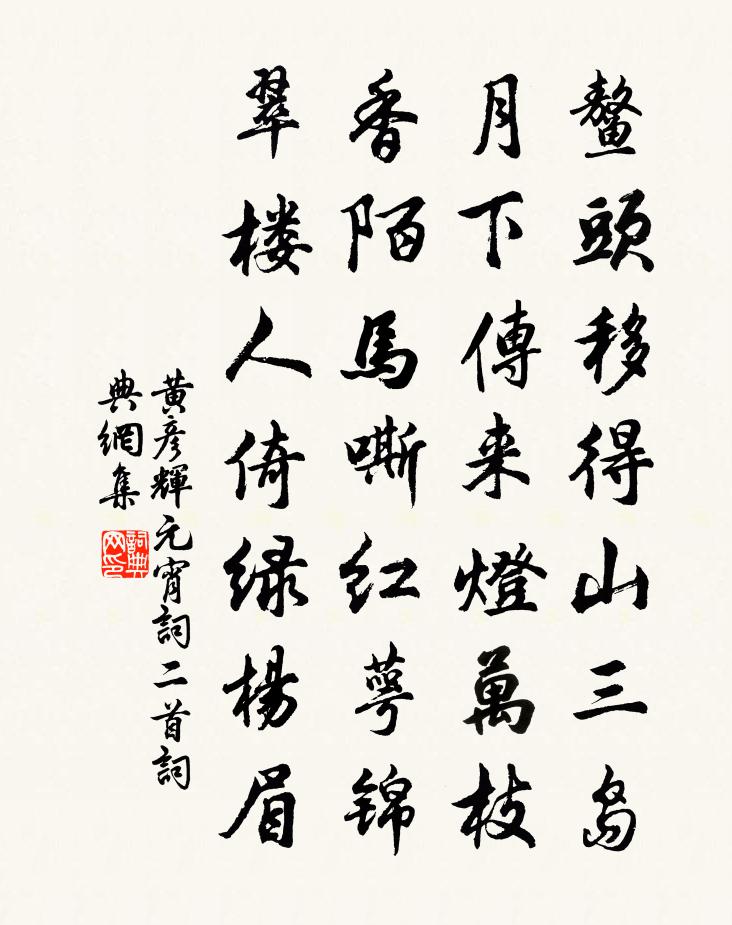 鳌頭移得山三島
月下傳来燈萬枝
香陌馬嘶红萼锦
翠楼人倚绿楊眉
黄彦輝元宵詞二首詞
典網集
詞典网印